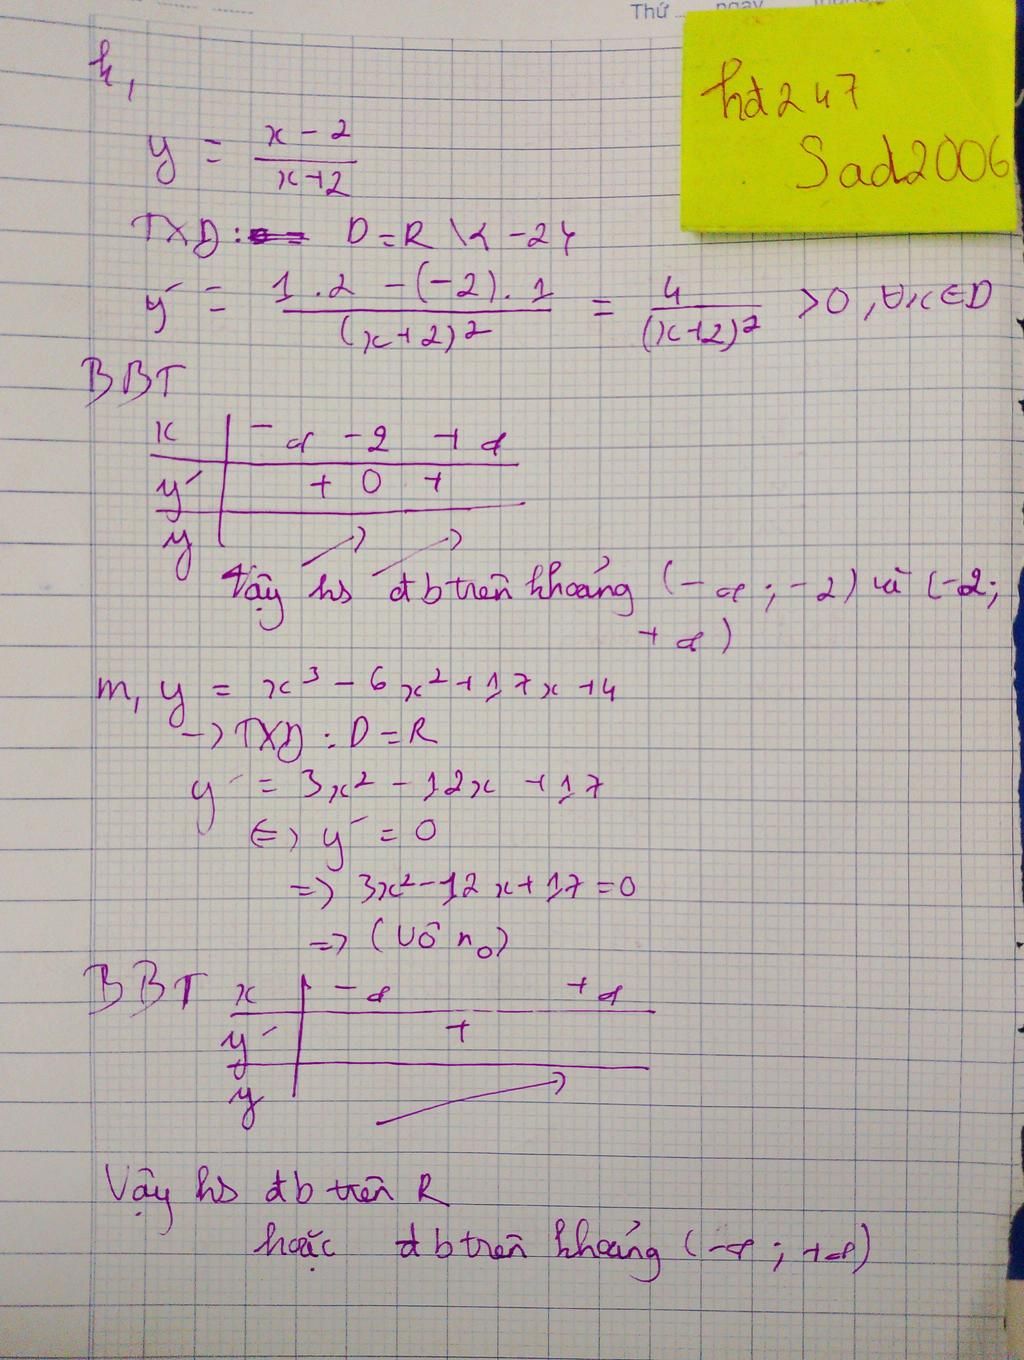 Thứ
ngày
hđ247
Sad2006
k,
y = (x - 2)/(x+2)
TXD: D = R \ {-2}
y' = (1.2 - (-2).1)/(x+2)² = 4/(x+2)² >0, ∀x∈D
BBT
x | -∞ -2 +∞
y' | + 0 +
y
Vậy hs đb trên khoảng (-∞; -2) và (-2;
+∞)
m, y = x³ - 6x² + 17x + 4
-> TXD: D = R
y' = 3x² - 12x + 17
<=> y' = 0
=> 3x² - 12x + 17 = 0
=> (Vô n₀)
BBT x | -∞ +∞
y' | +
y
Vậy hs đb trên R
hoặc đb trên khoảng (-∞; +∞)